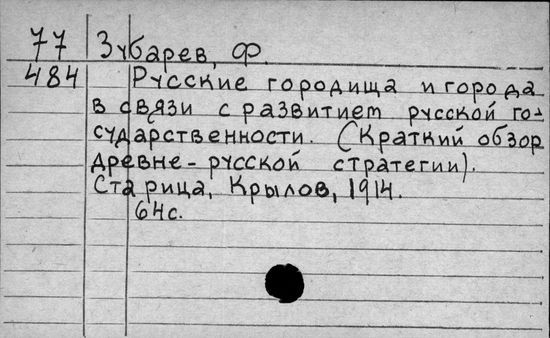 77 Зубарев, Ф.
484 Русские городища и города
в связи с развитием русской го-
сударственности. (Краткий обзор
древне-русской стратегии).
Старица, Крылов, 1914.
64с.